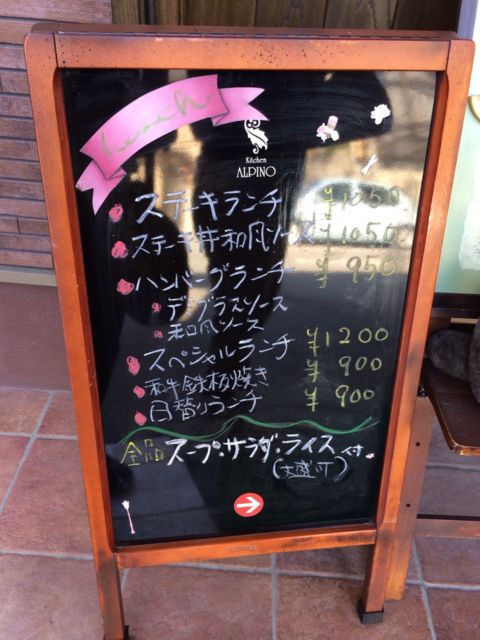 Lunch
Kitchen
ALPINO
ステーキランチ ¥1050
ステーキ丼和風ソース ¥1050
ハンバーグランチ ¥950
デミグラスソース
和風ソース
スペシャルランチ ¥1200
和牛鉄板焼き ¥900
日替りランチ ¥900
全品 スープ・サラダ・ライス付
(大盛可)